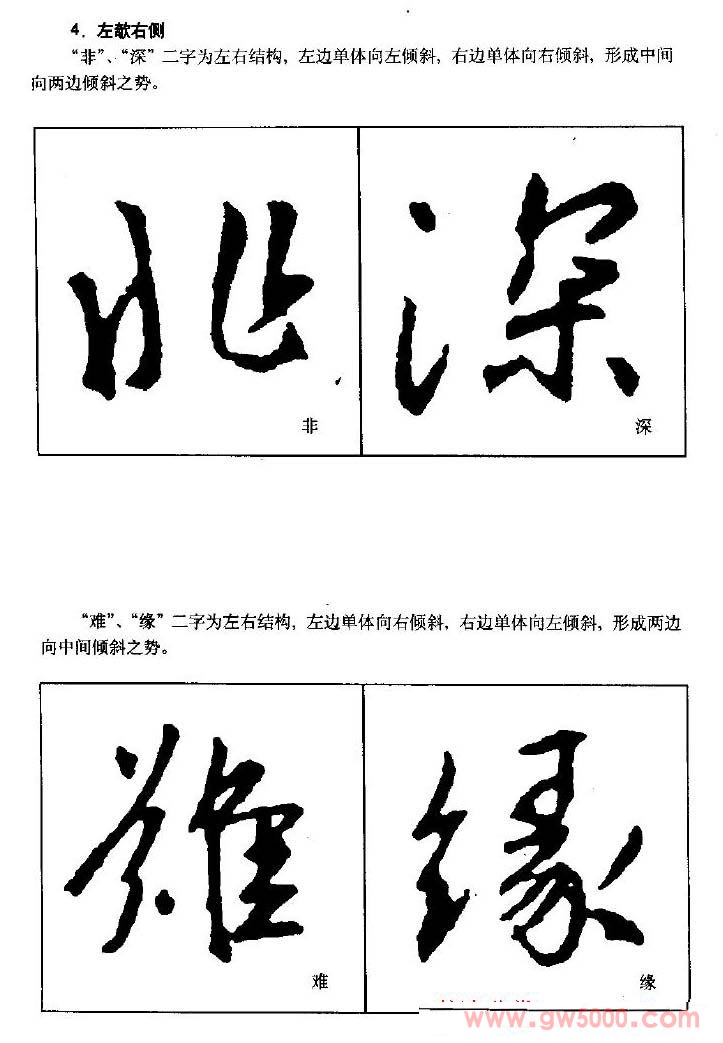 4．左欹右侧
“非”、“深”二字为左右结构，左边单体向左倾斜，右边单体向右倾斜，形成中间
向两边倾斜之势。
非 深
非 深
“难”、“缘”二字为左右结构，左边单体向右倾斜，右边单体向左倾斜，形成两边
向中间倾斜之势。
難 緣
难 缘
www.gw5000.com